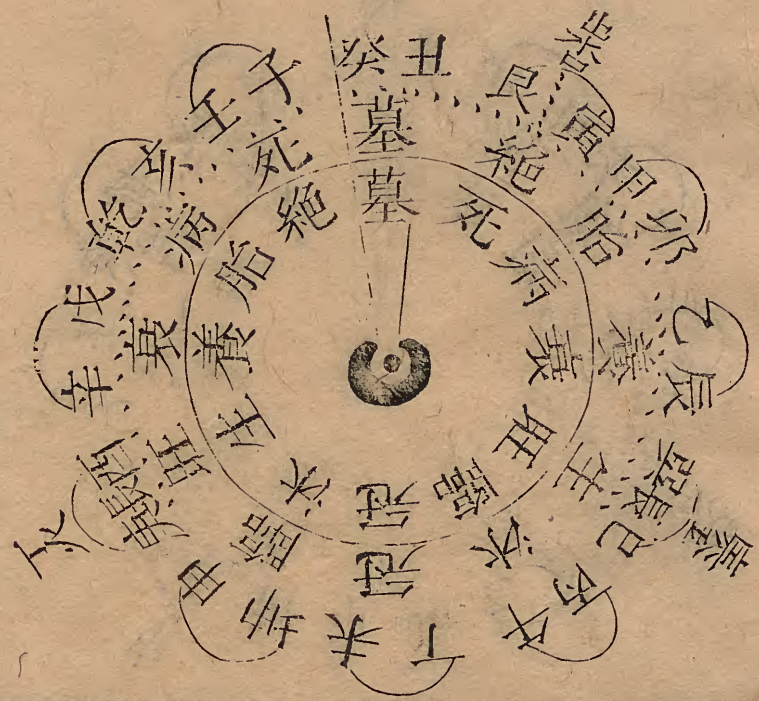 癸丑
艮寅
甲卯
乙辰
巽巳
丙午
丁未
坤申
庚酉
辛戌
乾亥
壬子
墓絕胎養生沐冠臨旺衰病死
墓死病衰旺臨冠沐生養胎絕